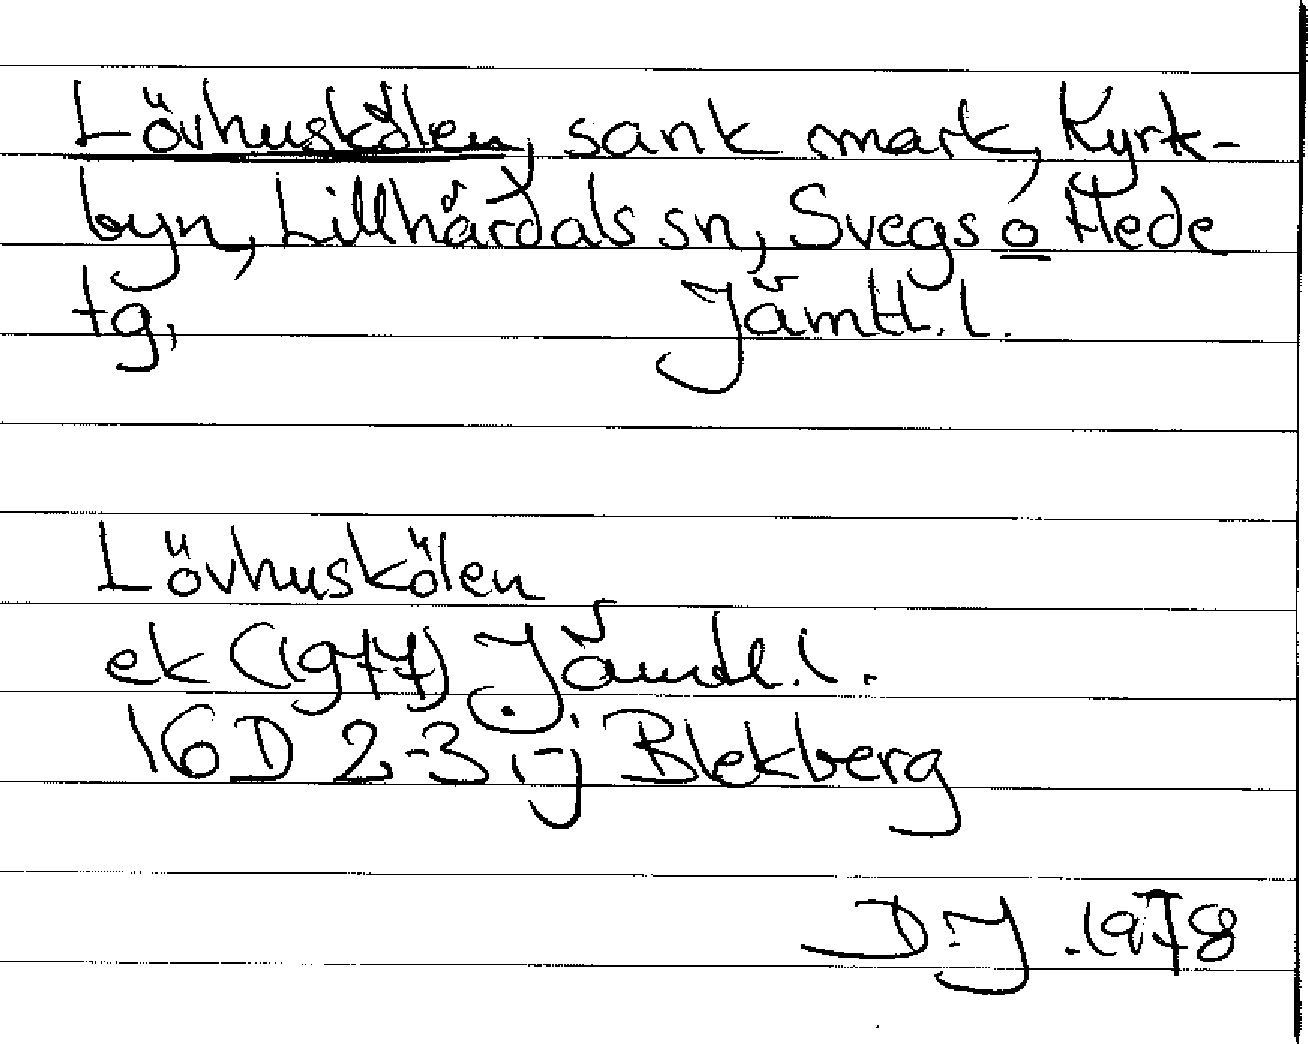 Lövhuskölen, sank mark, Kyrk-
byn, Lillhärdals sn, Svegs o Hede
tg, Jämtl. l.
Lövhuskölen
ek (1977) Jämtl. l.
16D 2-3 i-j Blekberg
D.J. 1978